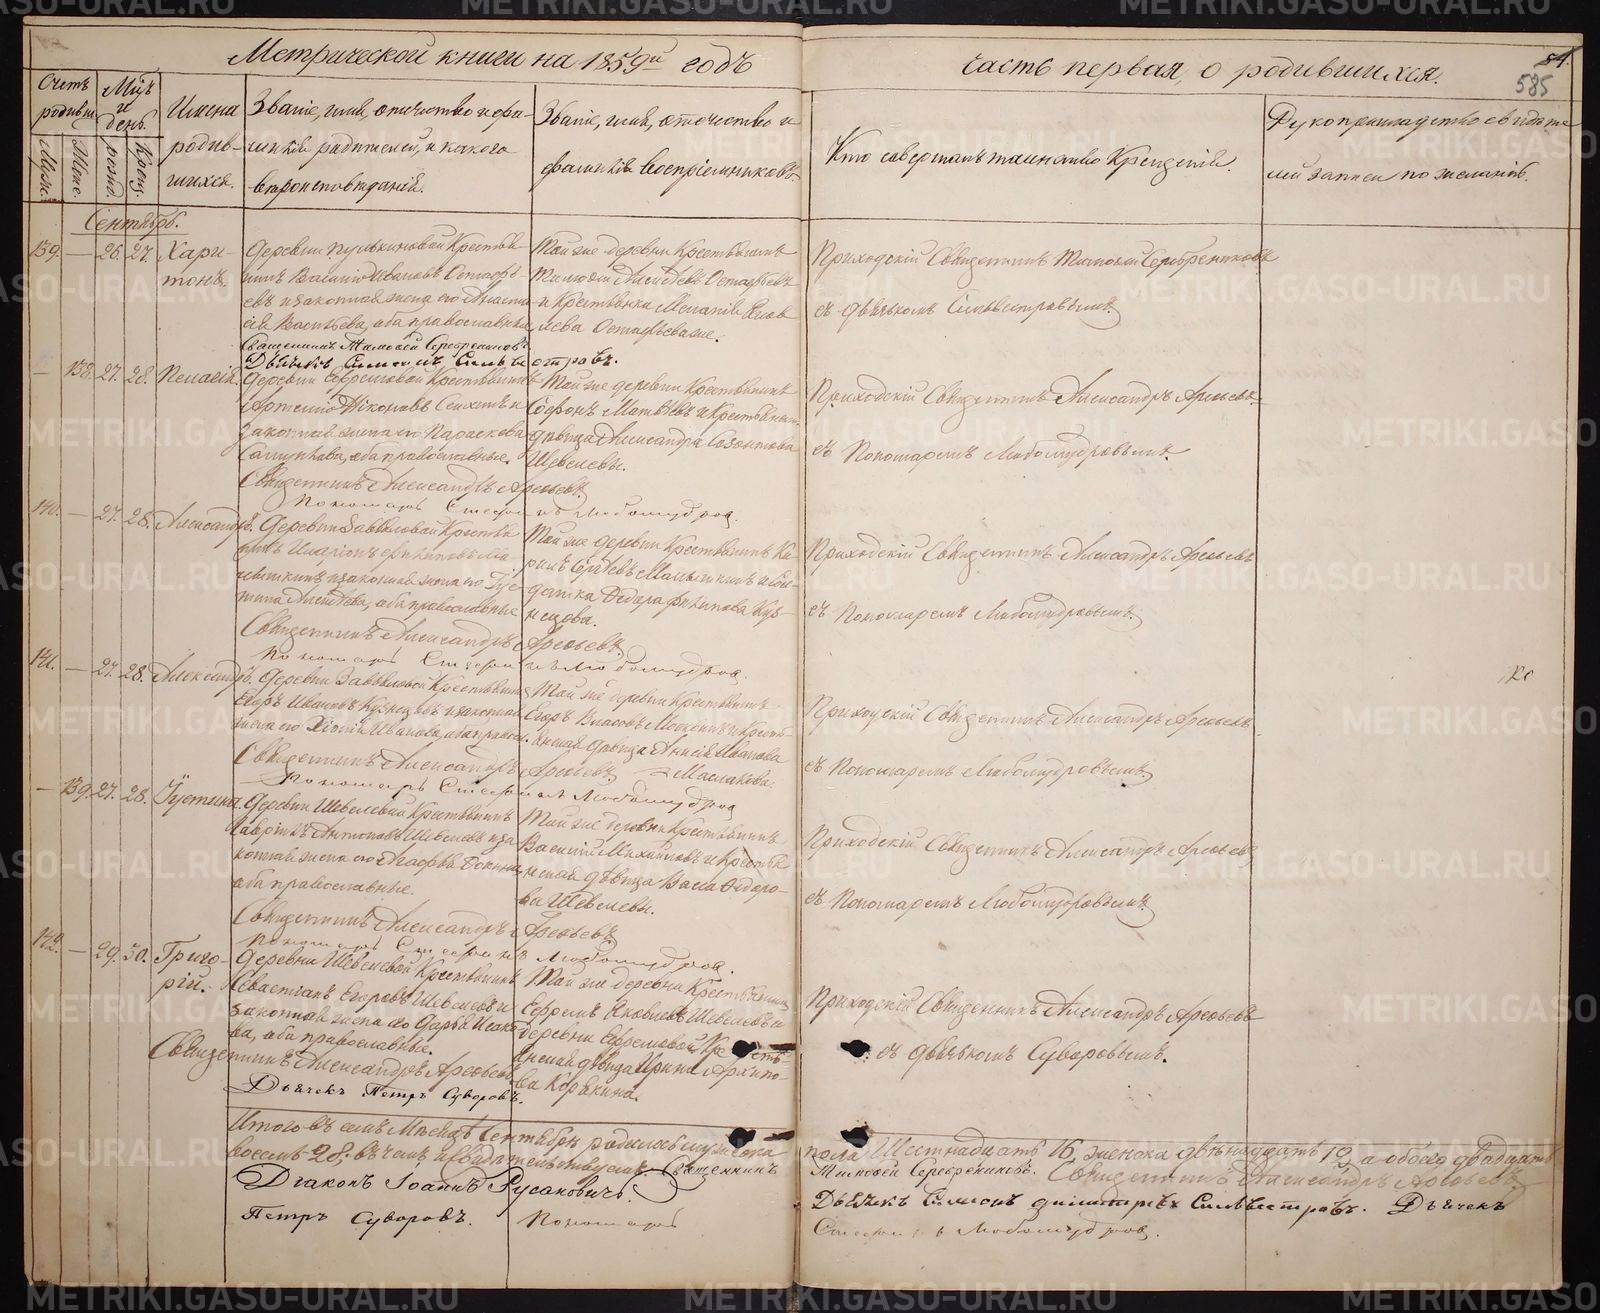 Метрической книги на 1859й годъ
часть первая, о родившихся.
585
Счетъ родивш.
Мужс.
Женс.
Мѣцъ и день.
рожд.
Крещ.
Имена
родив-
шихся.
Званіе, имя, отчество и фа-
милія родителей, и какого
вѣроисповѣданія.
Званіе, имя, отчество и
фамилія воспріемниковъ.
Кто совершалъ таинство Крещенія.
Рукоприкладство свидѣте
лей записи по желанію.
Сентябрь.
139. — 26. 27. Хари-
тонъ.
Деревни Крестья-
нинъ Василій Ивановъ Остафь-
евъ и законная жена его Анаста
сія Васильева, оба православные
Священникъ Тимофей Серебренниковъ
Дьячекъ Симеонъ Сильвестровъ.
Той же деревни Крестьянинъ
Тимофей Остафьевъ
и Крестьянка Меланія
Остафьева же.
Приходскій Священникъ Тимофей Серебренниковъ
съ дьячкомъ Сильвестровымъ.
— 138. 27. 28. Пелагія.
Деревни Ефремовой Крестьянинъ
Артемій Никоновъ и
законная жена его Параскева
оба православные.
Священникъ Александръ Арефьевъ.
Пономарь Стефанъ Любомудровъ.
Той же деревни Крестьянинъ
Софонъ Матвѣевъ и Крестьянская
дѣвица Александра
Шевелевы.
Приходскій Священникъ Александръ Арефьевъ
съ Пономаремъ Любомудровымъ.
140. — 27. 28. Александръ.
Деревни Завьяловой Крестья
нинъ Иларіонъ
и законная жена его Іус-
тина Алексѣева, оба православные
Священникъ Александръ Арефьевъ.
Пономарь Стефанъ Любомудровъ.
Той же деревни Крестьянинъ Ки-
рилъ Сергѣевъ и Сол-
датка Федора Филипова Куз-
нецова.
Приходскій Священникъ Александръ Арефьевъ
съ Пономаремъ Любомудровымъ.
141. — 27. 28. Александръ.
Деревни Завьяловой Крестьянинъ
Егоръ Ивановъ Кузнецовъ и законная
жена его Хіонія Иванова, оба правосл.
Священникъ Александръ Арефьевъ.
Пономарь Стефанъ Любомудровъ
Той же деревни Крестьянинъ
Егоръ Власовъ и Кресть-
янская дѣвица Анисія Иванова
Маслакова.
Приходскій Священникъ Александръ Арефьевъ
съ Пономаремъ Любомудровымъ.
— 139. 27. 28. Іустина.
Деревни Шевелевой Крестьянинъ
Гаврілъ Антоновъ Шевелевъ и за
конная жена его Агафья
оба православные.
Священникъ Александръ Арефьевъ.
Пономарь Стефанъ Любомудровъ.
Той же деревни Крестьянинъ
Василій Михайловъ и Крестья
нская дѣвица Васса Федоро-
ва Шевелевы.
Приходскій Священникъ Александръ Арефьевъ
съ Пономаремъ Любомудровымъ.
142. — 29. 30. Григо-
рій.
Деревни Шевелевой Крестьянинъ
Севастіанъ Егоровъ Шевелевъ и
законная жена его Дарья Исако
ва, оба православные.
Священникъ Александръ Арефьевъ
Дьячекъ Петръ Суворовъ.
Той же деревни Крестьянинъ
Ефремъ Яковлевъ Шевелевъ и
деревни Ефремовой Кресть-
янская дѣвица Ирина Архипо-
ва Корякина.
Приходскій Священникъ Александръ Арефьевъ
съ дьячкомъ Суворовымъ.
Итого въ семъ Мѣсяцѣ Сентябрѣ родилось мужеска пола Шестнадцать 16, женска двѣнадцать 12, а обоего двадцать
восемь 28. въ чемъ и свидѣтельствуемъ. Священникъ Тимофей Серебренниковъ. Священникъ Александръ Арефьевъ
Діаконъ Іоаннъ Русановичъ. Дьячекъ Симеонъ Сильвестровъ. Дьячекъ
Петръ Суворовъ. Пономарь Стефанъ Любомудровъ.
METRIKI.GASO-URAL.RU